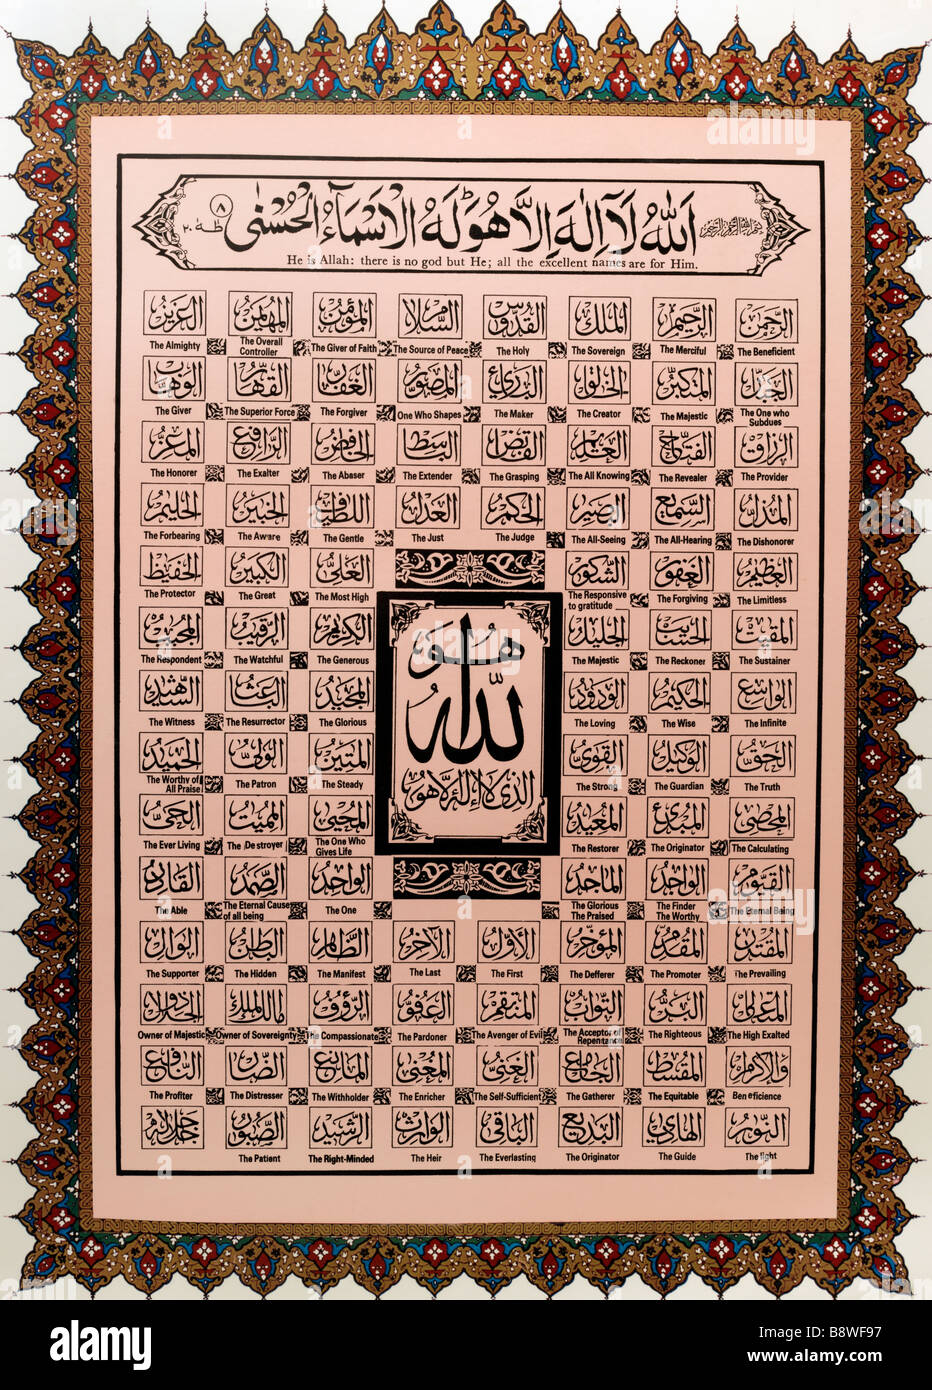 بسم الله الرحمن الرحيم
اَللّٰهُ لَآ اِلٰهَ اِلَّا هُوَ لَهُ الْاَسْمَآءُ الْحُسْنٰى
طٰهٰ ٢٠
٨
He is Allah: there is no god but He; all the excellent names are for Him.
الرحمن الرحيم الملك القدوس السلام المؤمن المهيمن العزيز
The Beneficient The Merciful The Sovereign The Holy The Source of Peace The Giver of Faith The Overall Controller The Almighty
الجبار المتكبر الخالق البارئ المصور الغفار القهار الوهاب
The One who Subdues The Majestic The Creator The Maker One Who Shapes The Forgiver The Superior Force The Giver
الرزاق الفتاح العليم القابض الباسط الخافض الرافع المعز
The Provider The Revealer The All Knowing The Grasping The Extender The Abaser The Exalter The Honorer
المذل السميع البصير الحكم العدل اللطيف الخبير الحليم
The Dishonorer The All-Hearing The All-Seeing The Judge The Just The Gentle The Aware The Forbearing
العظيم الغفور الشكور العلي الكبير الحفيظ
The Limitless The Forgiving The Responsive to gratitude The Most High The Great The Protector
المقيت الحسيب الجليل الكريم الرقيب المجيب
The Sustainer The Reckoner The Majestic The Generous The Watchful The Respondent
الواسع الحكيم الودود المجيد الباعث الشهيد
The Infinite The Wise The Loving The Glorious The Resurrector The Witness
الحق الوكيل القوي المتين الولي الحميد
The Truth The Guardian The Strong The Steady The Patron The Worthy of All Praise
المحصي المبدئ المعيد المحيي المميت الحي
The Calculating The Originator The Restorer The One Who Gives Life The Destroyer The Ever Living
القيوم الواجد الماجد الواحد الصمد القادر
The Eternal Being The Finder The Worthy The Glorious The Praised The One The Eternal Cause of all being The Able
هو
الله
الذى لا اله الا هو
المقتدر المقدم المؤخر الأول الآخر الظاهر الباطن الوال
The Prevailing The Promoter The Defferer The First The Last The Manifest The Hidden The Supporter
المتعالي البر التواب المنتقم العفو الرؤف مالك الملك ذو الجلال
The High Exalted The Righteous The Acceptor of Repentance The Avenger of Evil The Pardoner The Compassionate Owner of Sovereignty Owner of Majestic
والاكرام المقسط الجامع الغني المغني المانع الضار النافع
Beneficience The Equitable The Gatherer The Self-Sufficient The Enricher The Withholder The Distresser The Profiter
النور الهادي البديع الباقي الوارث الرشيد الصبور جل جلاله
The light The Guide The Originator The Everlasting The Heir The Right-Minded The Patient
alamy
Image ID: B8WF97
www.alamy.com